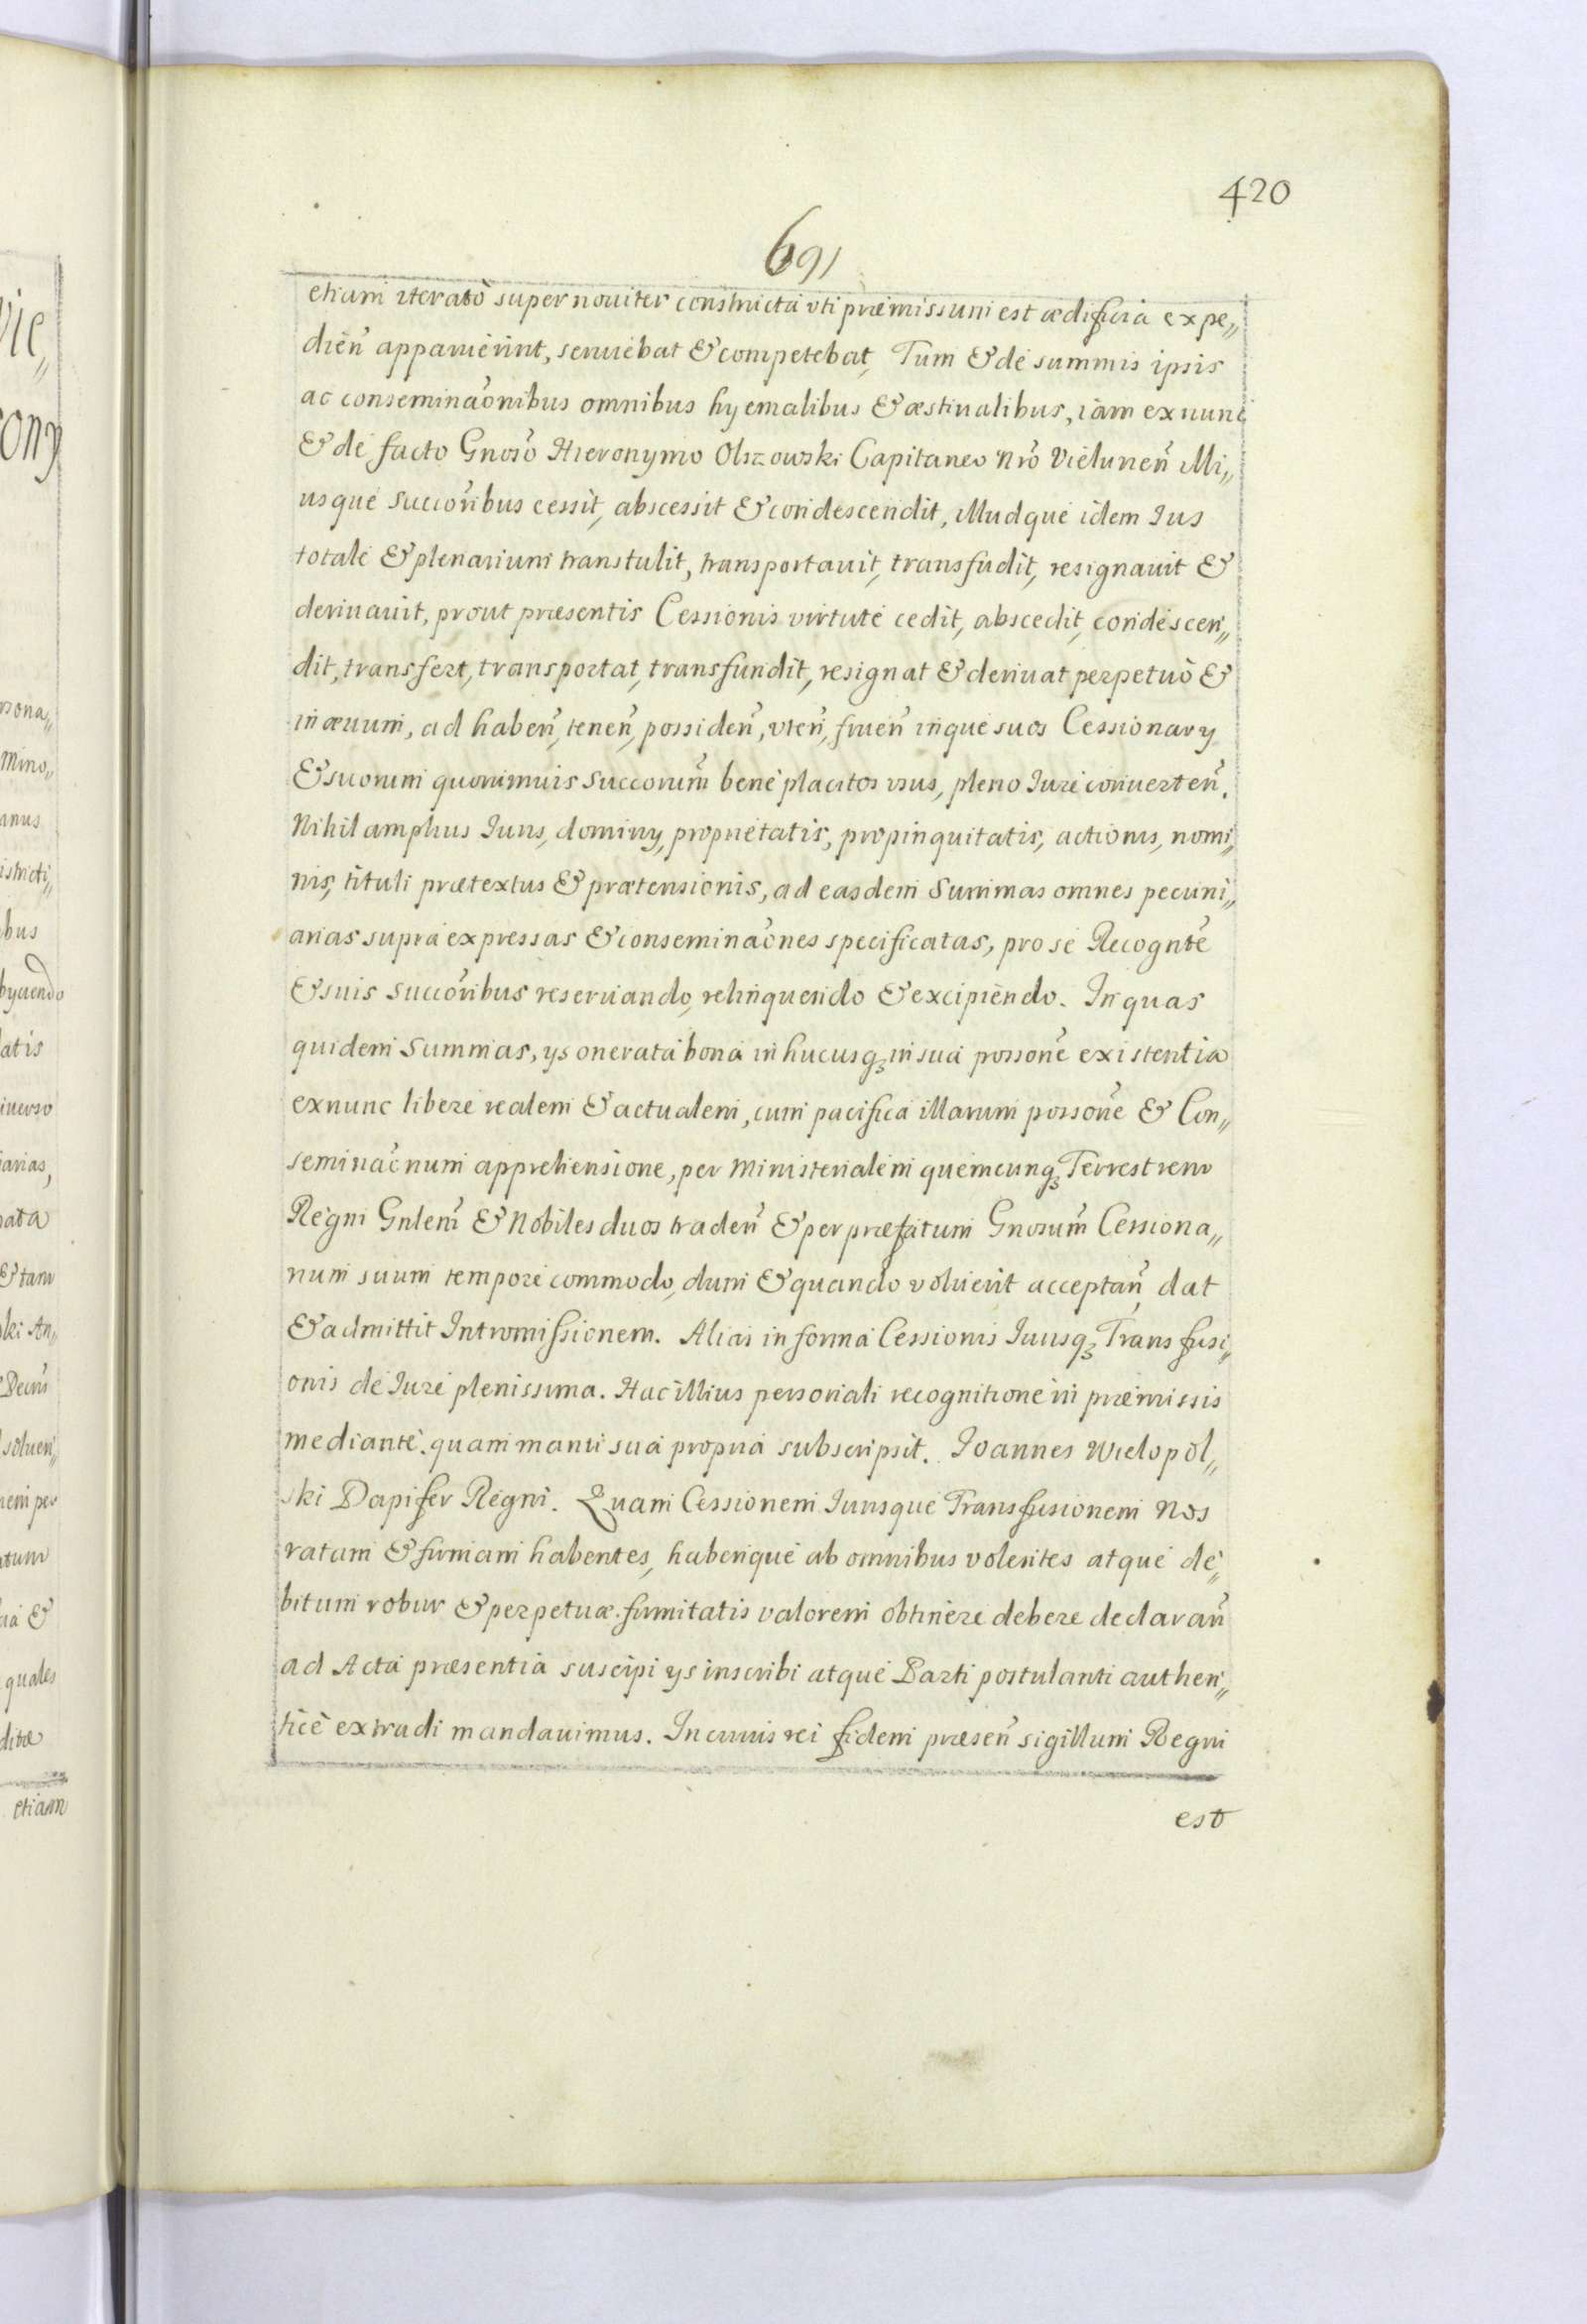 420
691
etiam iterato super nouiter constructa vti præmissum est ædificia expe„
dieñ apparuerint, seruiebat & competebat, Tum & de summis ipsis
ac conseminaõnibus omnibus hyemalibus & æstiualibus, iam ex nunc
& de facto Gnoso Hieronymo Olszowski Capitaneo Nro Vieluneñ illi„
usque succoribus cessit, abscessit & condescendit, illudque idem Ius
totale & plenarium transtulit, transportauit, transfudit, resignauit &
deriuauit, prout præsentis Cessionis virtute cedit, abscedit, condescen„
dit, transfert, transportat, transfundit, resignat & deriuat perpetuò &
in æuum, ad habeñ, teneñ, possideñ, vteñ, frueñ inque suos Cessionarij
& suorum quorumuis Succorum bene placitos vsus, pleno Iure conuerteñ.
Nihil amplius Iuris, dominij, proprietatis, propinquitatis, actionis, nomi„
nis, tituli prætextus & prætensionis, ad easdem Summas omnes pecuni„
arias supra expressas & conseminaõnes specificatas, pro se Recognte
& suis succoribus reseruando, relinquendo & excipiendo. In quas
quidem Summas, ijs onerata bona in hucusq₃ in sua possone existentia
ex nunc libere realem & actualem, cum pacifica illarum possone & Con„
seminaõnum apprehensione, per Ministerialem quemcunq₃ Terrestrem
Regni Gnlem & Nobiles duos tradeñ & per præfatum Gnosum Cessiona„
rium suum tempore commodo, dum & quando voluerit acceptañ, dat
& admittit Intromissionem. Alias in forma Cessionis Iurisq₃ Transfusi„
onis de Iure plenissima. Hac illius personali recognitione in præmissis
mediante. quam manu sua propria subscripsit. Ioannes Wielopol„
ski Dapifer Regni. Quam Cessionem Iurisque Transfusionem Nos
ratam & firmam habentes, haberique ab omnibus volentes atque de„
bitum robur & perpetuæ firmitatis valorem obtinere debere declarañ
ad Acta præsentia suscipi ijs inscribi atque Parti postulanti authen„
ticè extradi mandauimus. In cuius rei fidem præseñ sigillum Regni
est